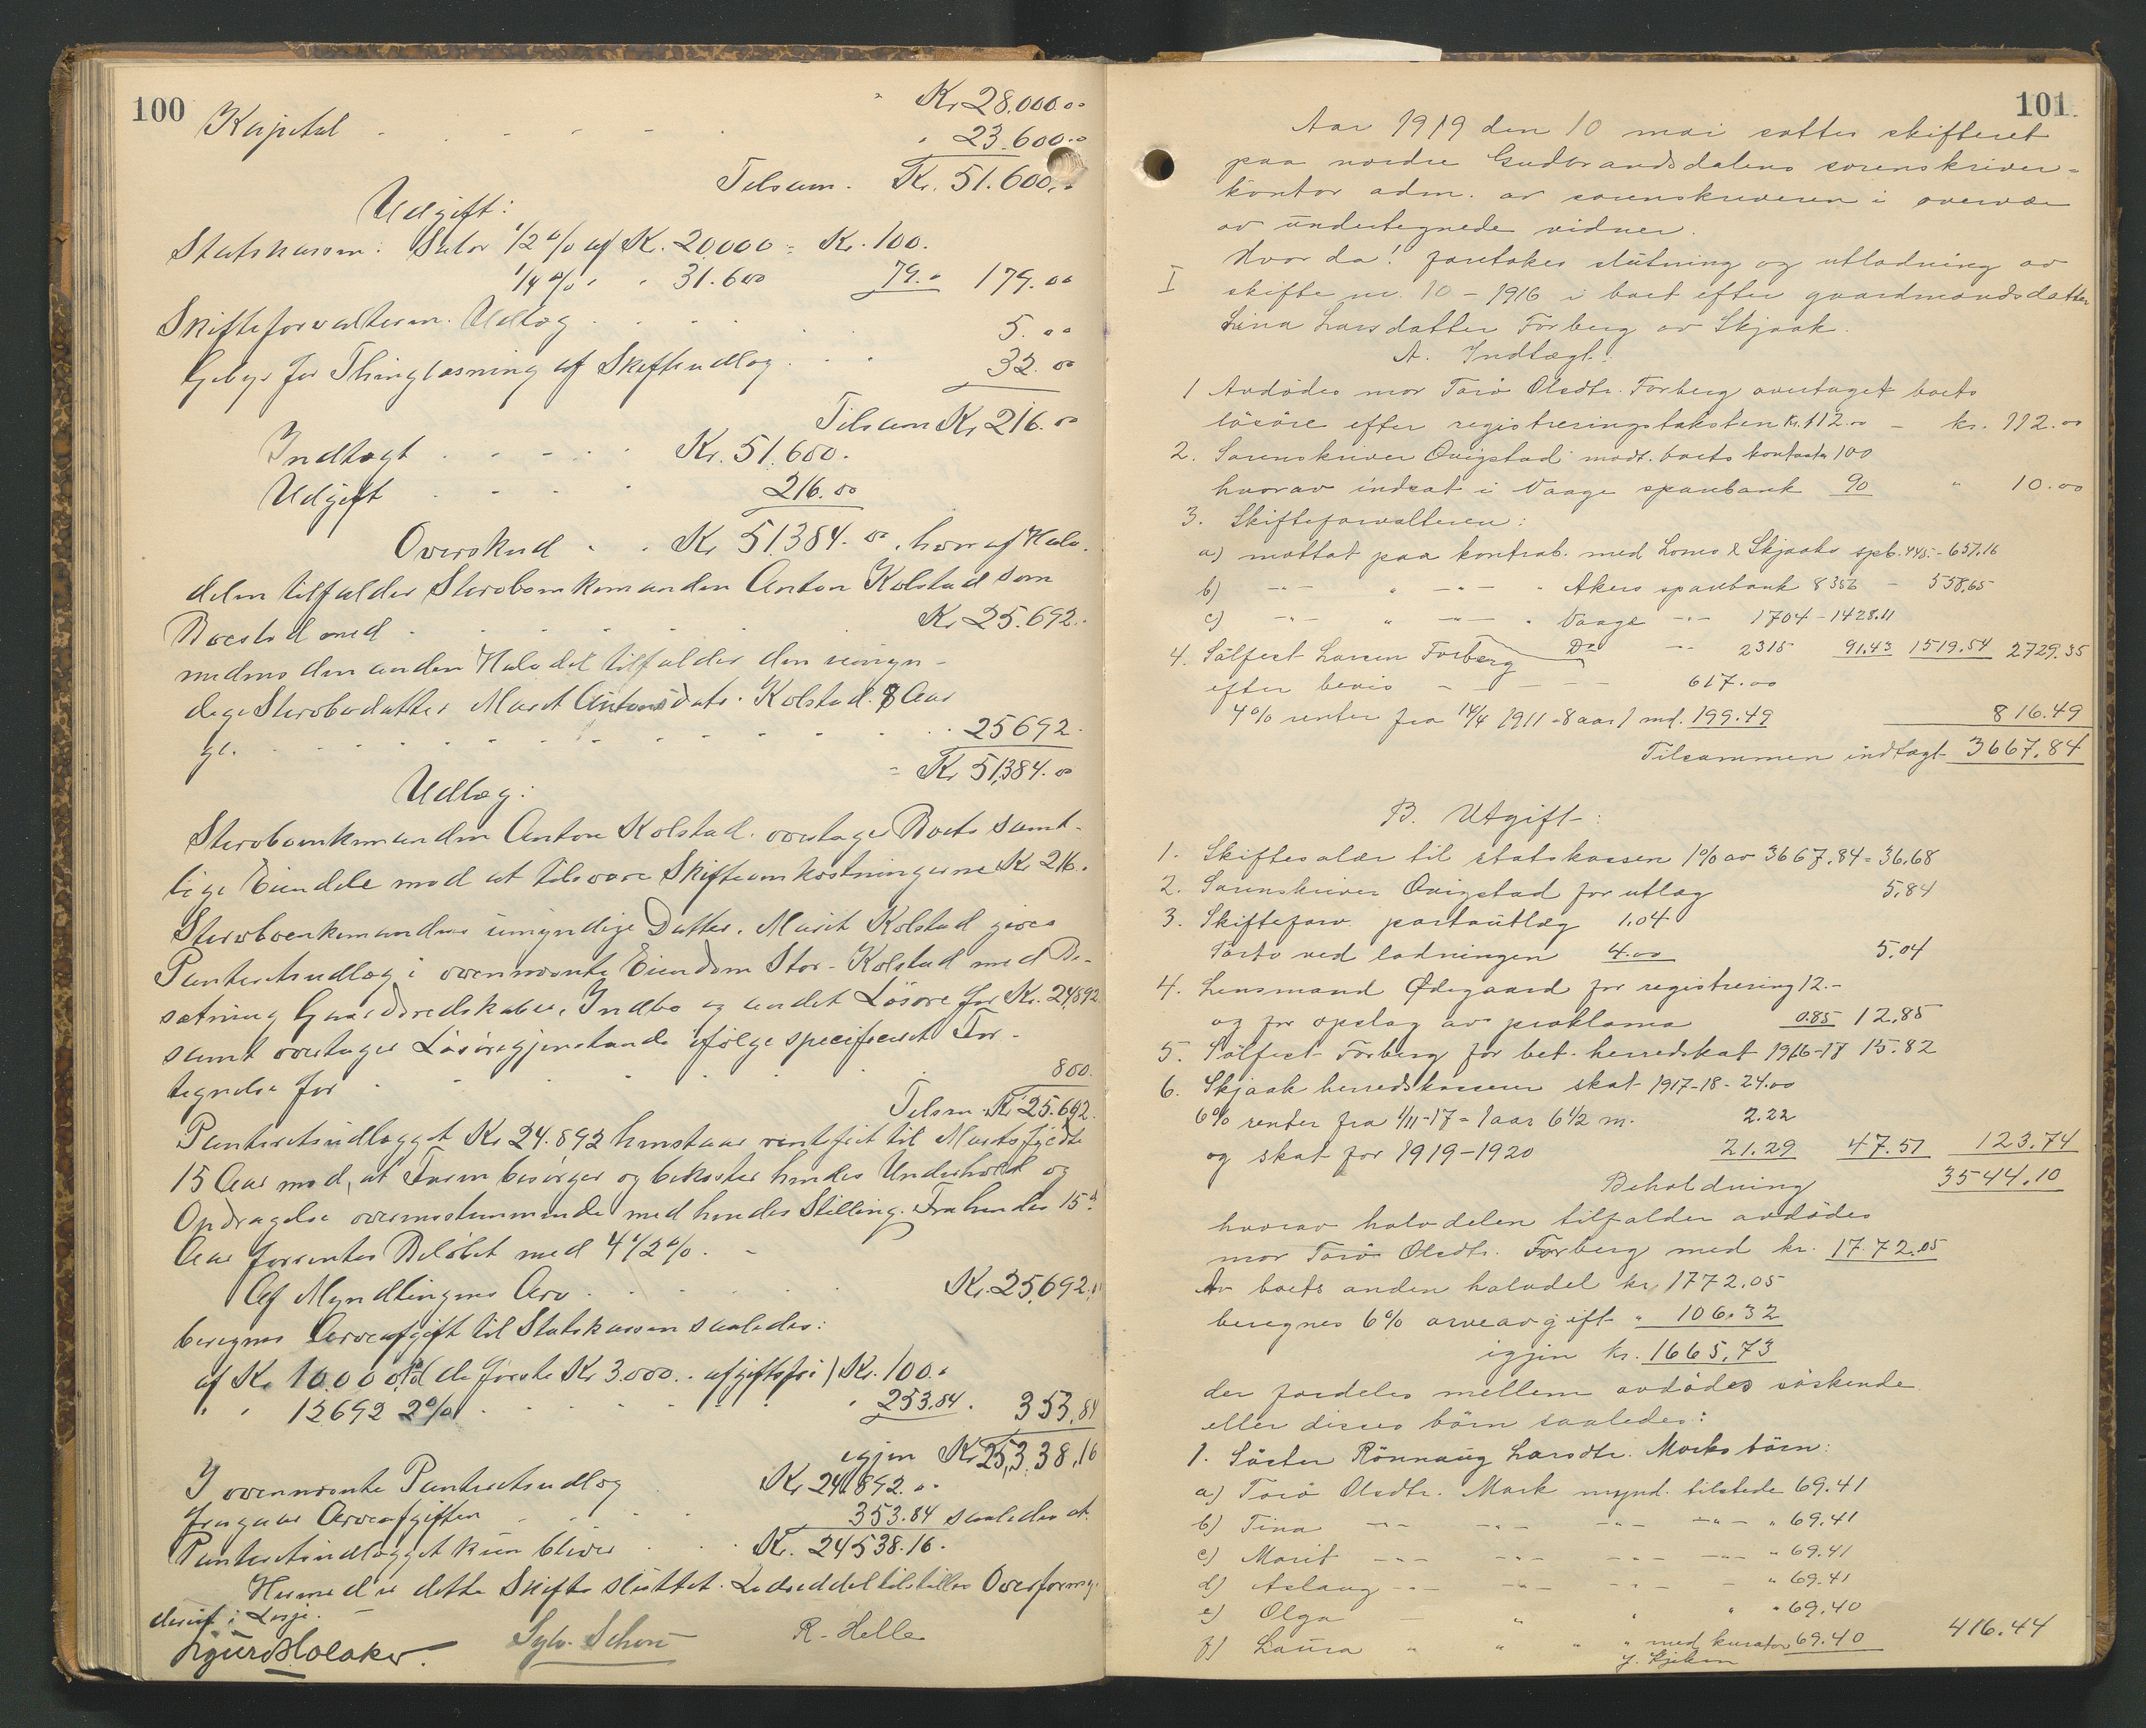 100
Kapital . . . . . " Kr 28.000.00
" 23.600.00
Tilsam. Kr. 51.600.00
Udgift:
Statskassen: Salær 1/2 % af Kr. 20000 = Kr. 100.
1/4 % " " 31.600 79.00 179.00
Skifteforvalteren. Udlæg . . . . 5.00
Gebyr for Thinglæsning af Skifteudlæg . . . 32.00
Tilsam Kr. 216.00
Indtægt . . . . . Kr. 51.600.
Udgift . . . . 216.00
Overskud . . Kr 51384.00, hvoraf Halv-
delen tilfalder Sterboenkemanden Anton Kolstad som
Boeslod med . . . . . . . Kr. 25.692.
medens den anden Halvdel tilfalder den umyn-
dige Sterbodatter Marit Antonsdatr. Kolstad. 8 Aar
gl. . . . . . . . . . . 25692.
= Kr 51384.00
Udlæg:
Sterboenkemanden Anton Kolstad. overtager Boets samt-
lige Eiendele mod at tilsvare Skifteomkostningerne Kr 216.
Sterboenkemandens umyndige Datter. Marit Kolstad gives
Panteretsudlæg i ovennævnte Eiendom Stor-Kolstad med Be-
sætning Gaardsredskaber, Indbo og andet Løsøre for Kr. 24,892
samt overtager Løsøregjenstande ifølge specificeret For-
tegnelse for . . . . . . . 800.
Tilsm. Kr 25.692.
Panteretsudlægget Kr 24.892 henstaar rentefrit til Marits fyldte
15 Aar mod, at Faren besørger og bekoster hendes Underhold og
Opdragelse overensstemmende med hendes Stilling. Fra hendes 15de
Aar forrentes Beløbet med 4 1/2 %. -
Af Myndlingens Arv . . . . . . Kr. 25,692.00
beregnes Arveafgift til Statskassen saaledes:
af Kr 10.000 (de første Kr 3.000.. afgiftsfri) Kr. 100.
" " 12692 2% . . . . . . " 253.84. 353.84
igjen Kr 25,338.16
I ovennævnte Panteretsudlæg Kr 24.892.00
fragaar Arveafgiften . . . 353.84 saaledes at
Panteretsudlægget kun bliver . . . Kr. 24538.16.
Hermed er dette Skifte sluttet. Lodseddel tilstilles Overformyn-
deriet i Lesje. -
Sigurd Holaker. Sylv. Schou R. Helle
101.
Aar 1919 den 10 mai sattes skifteret
paa nordre Gudbrandsdalens sorenskriver-
kontor adm. av sorenskriveren i overvær
av undertegnede vidner.
Hvor da! foretokes slutning og utlodning av
I skifte nr. 10 - 1916 i boet efter gaardmandsdatter
Lina Larsdatter Forberg av Skjaak.
A. Indtægt:
1 Avdødes mor Torø Olsdtr. Forberg overtaget boets
løsøre efter registreringstaksten kr. 112.00 - kr. 112.00
2. Sorenskriver Qvigstad modt. boets kontanter 100
hvorav indsat i Vaage sparebank 90 " 10.00
3. Skifteforvalteren:
a) mottat paa kontrab. med Loms & Skjaaks spb. 445 - 657.16
b) -"- " -"- " Akers sparebank 8356 - 558,65
c) -"- " -"- " Vaage -"- 1704 - 1428.11
Do -"- 2315 91.43 1519.54 2729.35
4. Sølfest Larsen Forberg
efter bevis - - - - 617.00
4% renter fra 14/4 1911 - 8 aar 1 md. 199.49 816.49
Tilsammen indtægt 3667.84
B. Utgift:
1. Skiftesalær til statskassen 1% av 3667.84 = 36.68
2. Sorenskriver Qvigstad for utlæg 5.84
3. Skifteforv. portoutlæg 1.04
Porto ved lodningen 4.00 5,04
4. Lensmand Ødegaard for registrering 12.-
og for opslag av proklama 0.85 12,85
5. Sølfest Forberg for bet. herredskat 1916-17 15.82
6. Skjaak herredskassen skat 1917-18 - 24.00
6% renter fra 1/11-17 = 1 aar 6 1/2 m. 2.22
og skat for 1919-1920 21.29 47.51 123.74
Beholdning 3544.10
hvorav halvdelen tilfalder avdødes
mor Torø Olsdtr. Forberg med kr. 1772.05
Av boets anden halvdel kr. 1772.05
beregnes 6% arveavgift " 106.32
igjen kr. 1665,73
der fordeles mellem avdødes søskende
eller disses børn saaledes:
1. Søster Rønnaug Larsdtr. Morks børn:
a) Torø Olsdtr. Mork mynd. tilstede 69.41
b) Tina -"- -"- -"- -"- " 69.41
c) Marit -"- -"- -"- -"- " 69.41
d) Aslaug -"- -"- -"- - " 69.41
e) Olga - " " " " 69.40
f) Laura " " " " med kurator 69.40 416.44